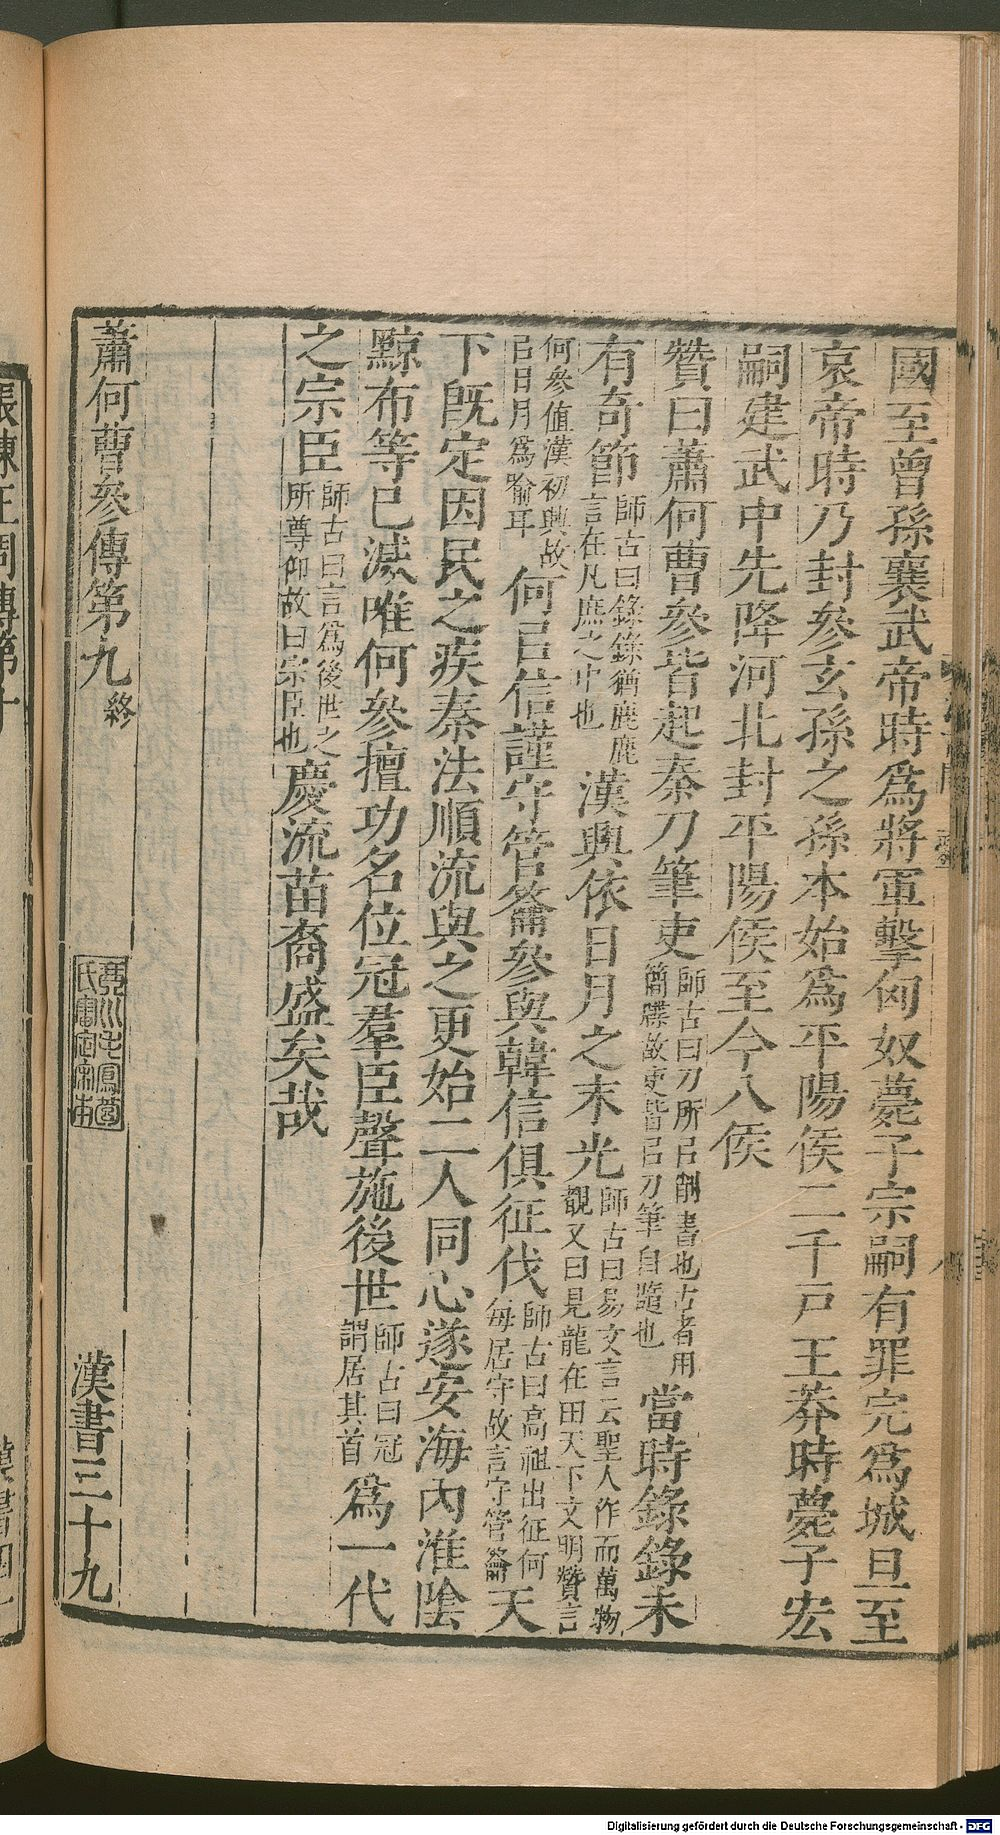 國至曾孫襄武帝時爲將軍擊匈奴薨子宗嗣有罪完爲城旦至
哀帝時乃封參玄孫之孫本始爲平陽侯二千戸王莽時薨子宏
嗣建武中先降河北封平陽侯至今八侯
贊曰蕭何曹參皆起秦刀筆吏師古曰刀所㠯削書也古者用簡牒故吏皆㠯刀筆自隨也當時錄錄未
有奇節師古曰錄錄猶鹿鹿言在凡庶之中也漢興依日月之末光師古曰易文言云聖人作而萬物覩又曰見龍在田天下文明贊言
何參值漢初興故㠯日月爲喻耳何㠯信謹守管籥參與韓信俱征伐師古曰高祖出征何每居守故言守管籥天
下既定因民之疾秦法順流與之更始二人同心遂安海內淮陰
黥布等已滅唯何參擅功名位冠羣臣聲施後世師古曰冠謂居其首爲一代
之宗臣師古曰言爲後世之所尊仰故曰宗臣也慶流苗裔盛矣哉
蕭何曹參傳第九終
漢書三十九
Digitalisierung gefördert durch die Deutsche Forschungsgemeinschaft - DFG